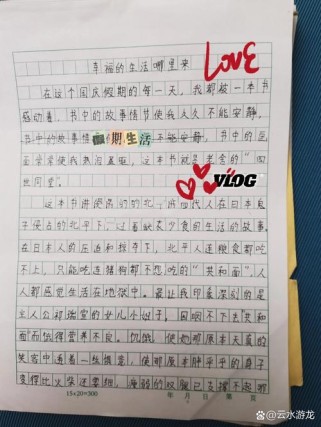 幸福的生活哪里来
LOVE
在这个国庆假期的每一天，我都被一本书
感动着，书中的故事情节使我久久不能安静。
书中的故事情 期生活 不能安静，书中的
常常使我热泪盈眶，这本书就是老舍的“四
世同堂”。
VLOG
这本书讲 的是 四代人在日本鬼
子侵占的北平下，过着缺衣少食的生活的故事。
在日本人的压迫和掠夺下，北平人连粮食都吃
不上，只能吃连猪狗都不想吃的“共和面”，人
人都感觉生活在地狱中。最让我印象深刻的是
主人公祁瑞宣的女儿小妞子，因咽不下去共和
面而饿得营养不良。饥饿，使她那原本天真的
笑容中透着一丝 ，使那原本胖乎乎的身子
变得比火柴还要细，瘦弱的双腿已支撑不起那
15×20=300 年 月 日 第 页
@云水游龙